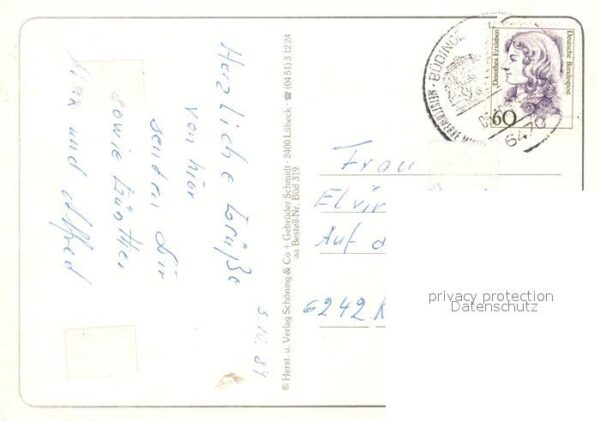 Herzliche Grüße
von hier
senden Dir
sowie Günther
und Alfred
3.10.89
© Herst. u. Verlag Schöning & Co + Gebrüder Schmidt · 2400 Lübeck · ☎ (04 51) 3 12 24
au Bestell-Nr. Büd 319
BÜDINGE
6470
Dorothea Erxleben
Deutsche Bundespost
60
Frau
Elvir
Auf d
6242 K
privacy protection
Datenschutz